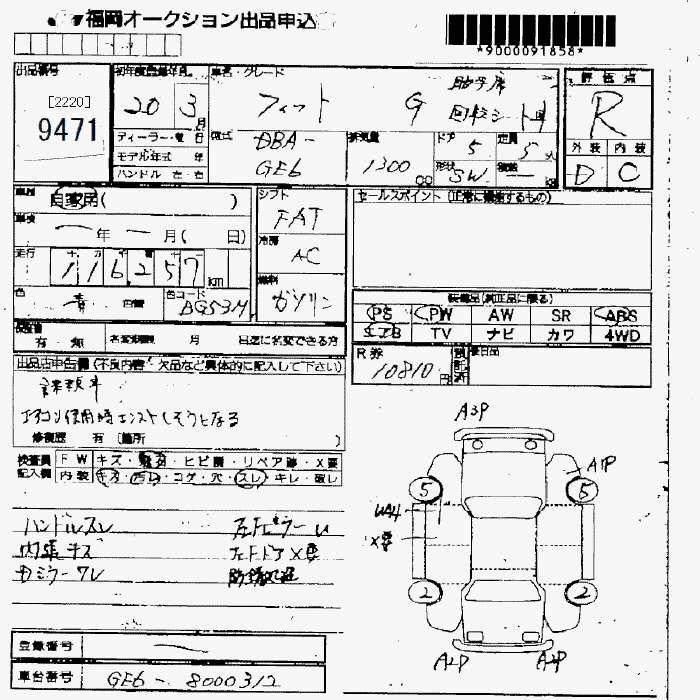 福岡オークション出品申込
*9000091858*
出品番号
[2220]
9471
初年度登録年月
20 3月
ディーラー・並 行
モデル年式 年
ハンドル 左・右
車名・グレード
フィット G
助手席
回転シート車
型式
DBA-
GE6
排気量
1300 CC
ドア
5
形状
SW
定員
5人
積載
— kg
評価点
R
外装 内装
D C
車歴
自家用( )
車検
一年一月( 日)
走行
116,257km
色
青 色替
色コード
BG53M
シフト
FAT
冷房
AC
燃料
ガソリン
セールスポイント (正常に機能するもの)
装備品(純正品に限る)
PS PW AW SR ABS
エアB TV ナビ カワ 4WD
有 無 名変期限 月 日迄に名変できる方
R券
10810円
後日品
出品店申告欄(不良内容・欠品など具体的に記入して下さい)
エアコン使用時エンストしそうになる
修復歴 有 [箇所 ]
検査員記入欄
FW キズ・ ・ヒビ割・リペア跡・X要
内装 キズ・ ・コゲ・穴・スレ・キレ・破レ
ハンドルスレ
内張キズ
左ドアX要
A3P
A1P
5 5
UA4
X要
2 2
A2P
登録番号
—
車台番号
GE6-8000312